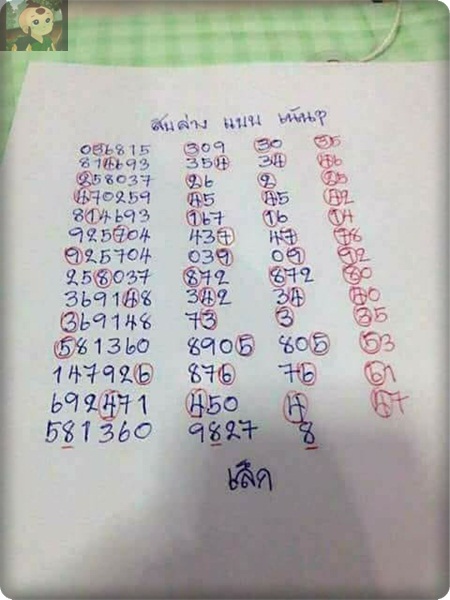 สิบล่าง แบบ เน้นๆ
036815 309 30 35
814693 354 34 46
258037 26 2 25
470259 45 45 42
814693 167 16 14
925704 437 47 78
925704 039 09 92
258037 872 872 80
369148 342 34 40
369148 73 3 35
581360 8905 805 53
147926 876 76 61
692471 450 4 47
581360 9827 8
เล็ก